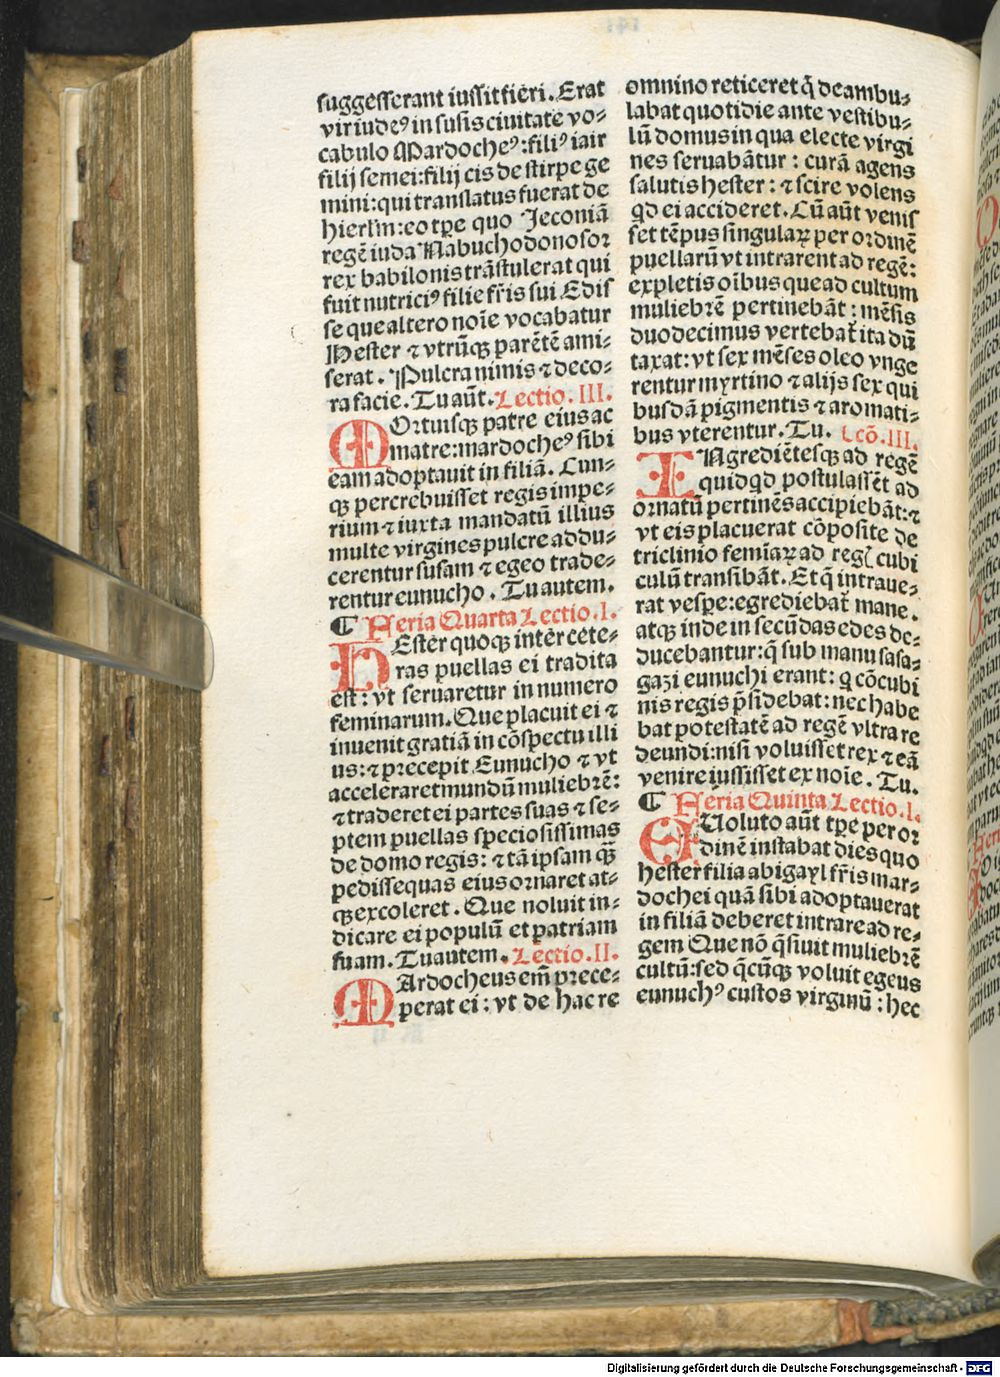 suggesserant iussit fieri. Erat
vir iudeꝰ in susis ciuitate vo-
cabulo Mardocheꝰ: filiꝰ iair
filij semei: filij cis de stirpe ge
mini: qui translatus fuerat de
hierlm̄: eo tꝑe quo Jeconiā
regē iuda Nabuchodonosor
rex babilonis trāstulerat qui
fuit nutriciꝰ filie fr̄is sui Edis
se que altero noīe vocabatur
Hester ⁊ vtrūqꝫ parētē ami-
serat. Pulcra nimis ⁊ deco-
ra facie. Tu aūt. Lectio. III.
MOrtuisqꝫ patre eius ac
matre: mardocheꝰ sibi
eam adoptauit in filiā. Cun-
qꝫ percrebuisset regis impe-
rium ⁊ iuxta mandatū illius
multe virgines pulcre addu-
cerentur susam ⁊ egeo trade-
rentur eunucho. Tu autem.
¶ Feria Quarta Lectio. I.
HEster quoqꝫ inter cete-
ras puellas ei tradita
est: vt seruaretur in numero
feminarum. Que placuit ei ⁊
inuenit gratiā in cōspectu illi
us: ⁊ precepit Eunucho ⁊ vt
acceleraret mundū muliebrē:
⁊ traderet ei partes suas ⁊ se-
ptem puellas speciosissimas
de domo regis: ⁊ tā ipsam qꝫ̄
pedissequas eius ornaret at-
qꝫ excoleret. Que noluit in-
dicare ei populū et patriam
suam. Tu autem. Lectio. II.
MArdocheus em̄ prece-
perat ei: vt de hac re
omnino reticeret q̄ deambu-
labat quotidie ante vestibu-
lū domus in qua electe virgi
nes seruabātur: curā agens
salutis hester: ⁊ scire volens
qd ei accideret. Cū aūt venis
set tēpus singulaꝝ per ordinē
puellarū vt intrarent ad regē:
expletis oībus que ad cultum
muliebrē pertinebāt: mēsis
duodecimus vertebat̄ ita dū
taxat: vt sex mēses oleo vnge
rentur myrtino ⁊ alijs sex qui
busdā pigmentis ⁊ aromati-
bus vterentur. Tu. Lcō. III.
INgrediētesqꝫ ad regē
quidqd postulassēt ad
ornatū pertinēs accipiebāt: ⁊
vt eis placuerat cōposite de
triclinio femīaꝝ ad regꝭ cubi
culū transibāt. Et q̄ intraue-
rat vespe: egrediebat̄ mane.
atqꝫ inde in secūdas edes de-
ducebantur: q̄ sub manu sasa-
gazi eunuchi erant: q cōcubi
nis regis p̄sidebat: nec habe
bat potestatē ad regē vltra re
deundi: nisi voluisset rex ⁊ eā
venire iussisset ex noīe. Tu.
¶ Feria Quinta Lectio. I.
EUoluto aūt tꝑe per or
dinē instabat dies quo
hester filia abigayl fr̄is mar-
dochei quā sibi adoptauerat
in filiā deberet intrare ad re-
gem Que nō q̄siuit muliebrē
cultū: sed q̄cūqꝫ voluit egeus
eunuchꝰ custos virginū: hec
Digitalisierung gefördert durch die Deutsche Forschungsgemeinschaft - DFG